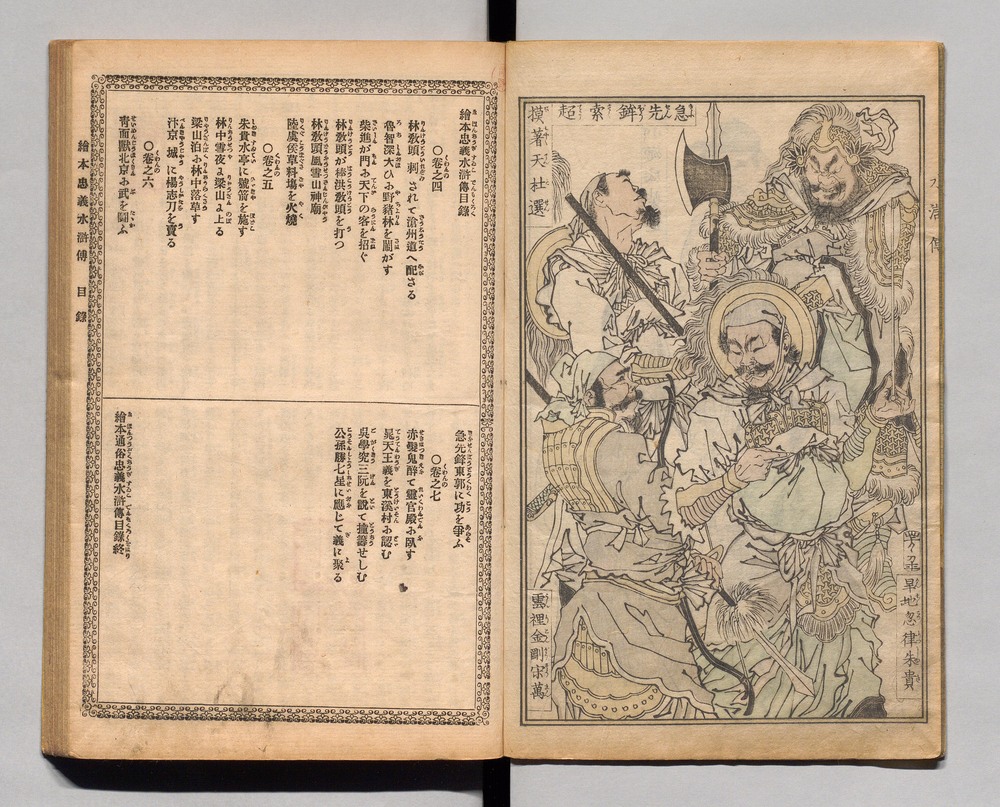 急先鋒索超
摸著天杜選
旱地忽律朱貴
雲裡金剛宋萬
繪本忠義水滸傳目錄
○卷之四
林敎頭刺されて滄州道へ配さる
魯智深大ひふ野豬林を鬧がす
柴進が門ふ天下の客を招ぐ
林敎頭が棒洪敎頭を打つ
林敎頭風雪山神廟
陸虞侯草料場を火燒
○卷之五
朱貴水亭に號箭を施す
林中雪夜ょ梁山ょ上る
梁山泊ふ林中落草す
汴京城に楊志刀を賣る
○卷之六
靑面獸北京ふ武を鬪ふ
急先鋒東郭に功を爭ふ
○卷之七
赤髮鬼醉て靈官殿ふ臥す
晁天王義を東溪村ふ認む
吳學究三阮を說て撞籌せしむ
公孫勝七星に應じて義に聚る
繪本通俗忠義水滸傳目錄終
繪本忠義水滸傳 目錄